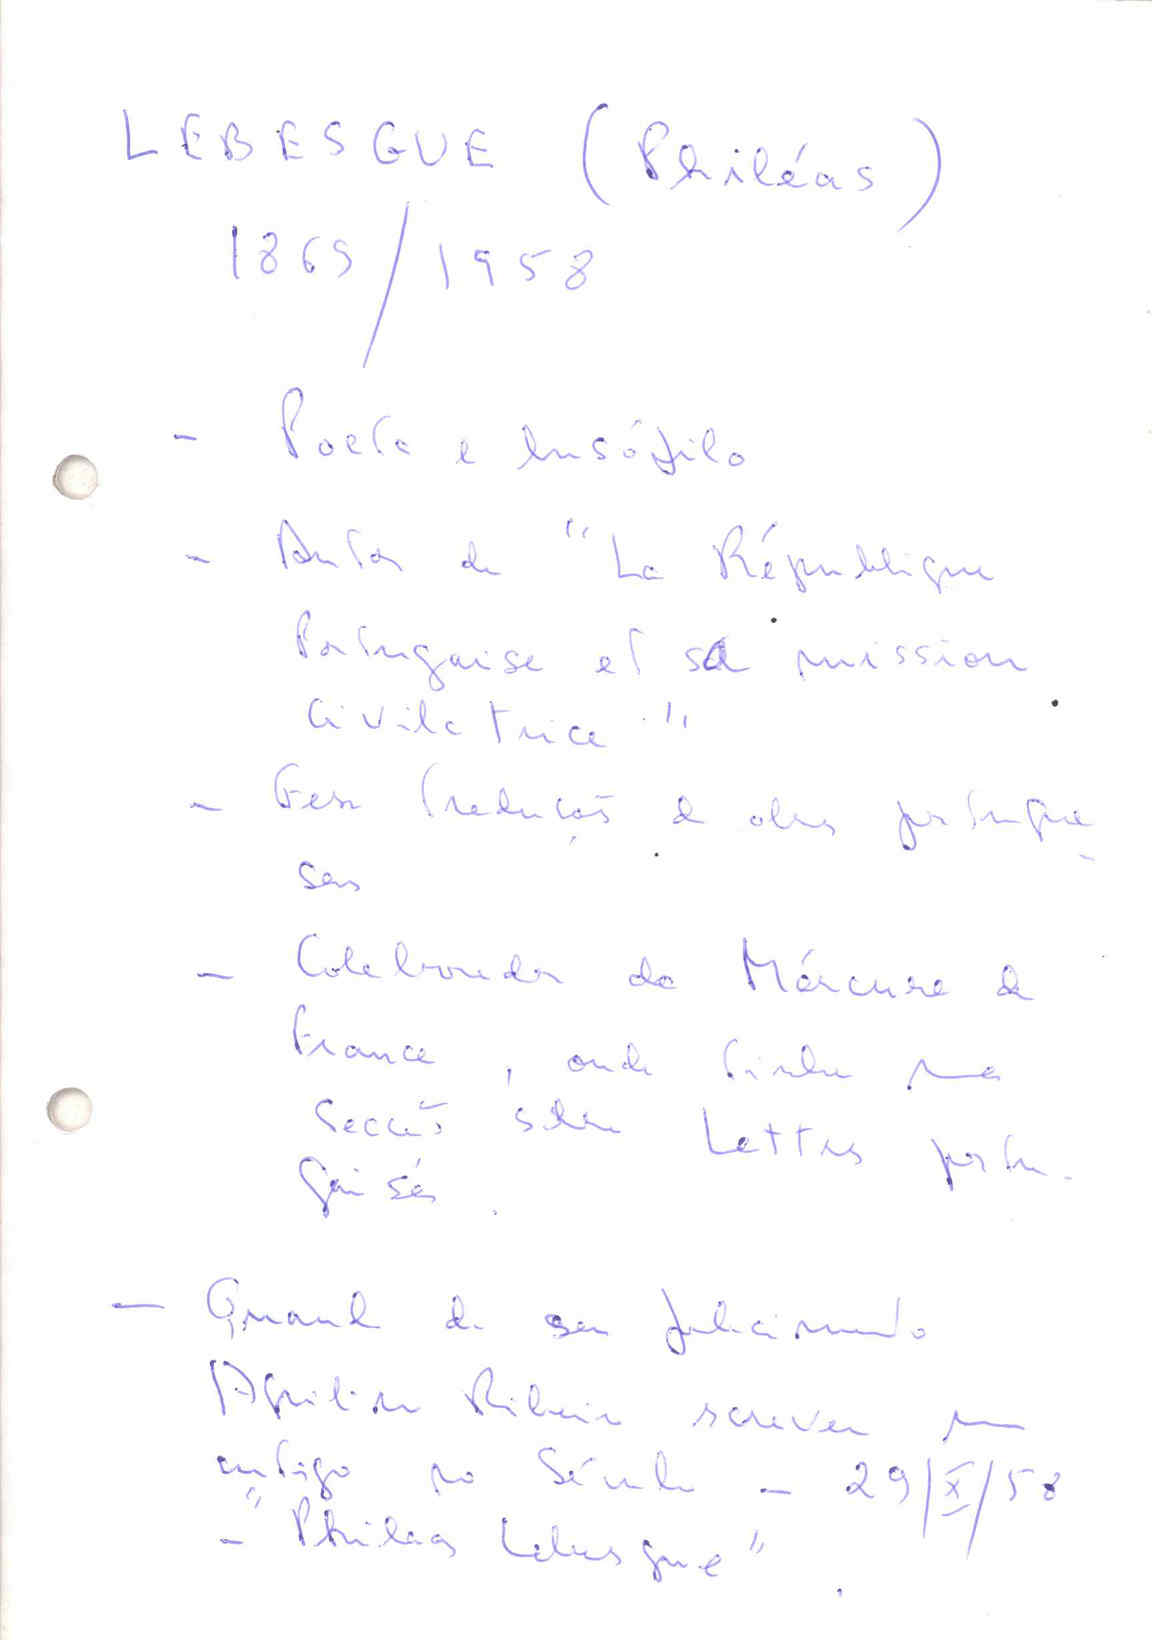 LEBESGUE (Philéas)
1869/1958
- Poeta e lusófilo
- Autor de "La République
Portugaise et sa mission
civilatrice"
- Fez traduções de obras portugue
sas
- Colaborador do Mércure de
France, onde tinha uma
secção sobre Lettres portu-
gaises.
- Quando do seu falecimento
Aquilino Ribeiro escreveu um
artigo no Século - 29/X/58
- "Philéas Lebesgue".